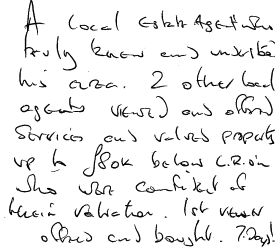 A local Estate Agent who
truly knew and understood
his area. 2 other local
agents viewed and offered
Services and valued property
up to £80K below C.R. on
who were confident of
their valuation. 1st viewer
offered and bought. 7 Days!